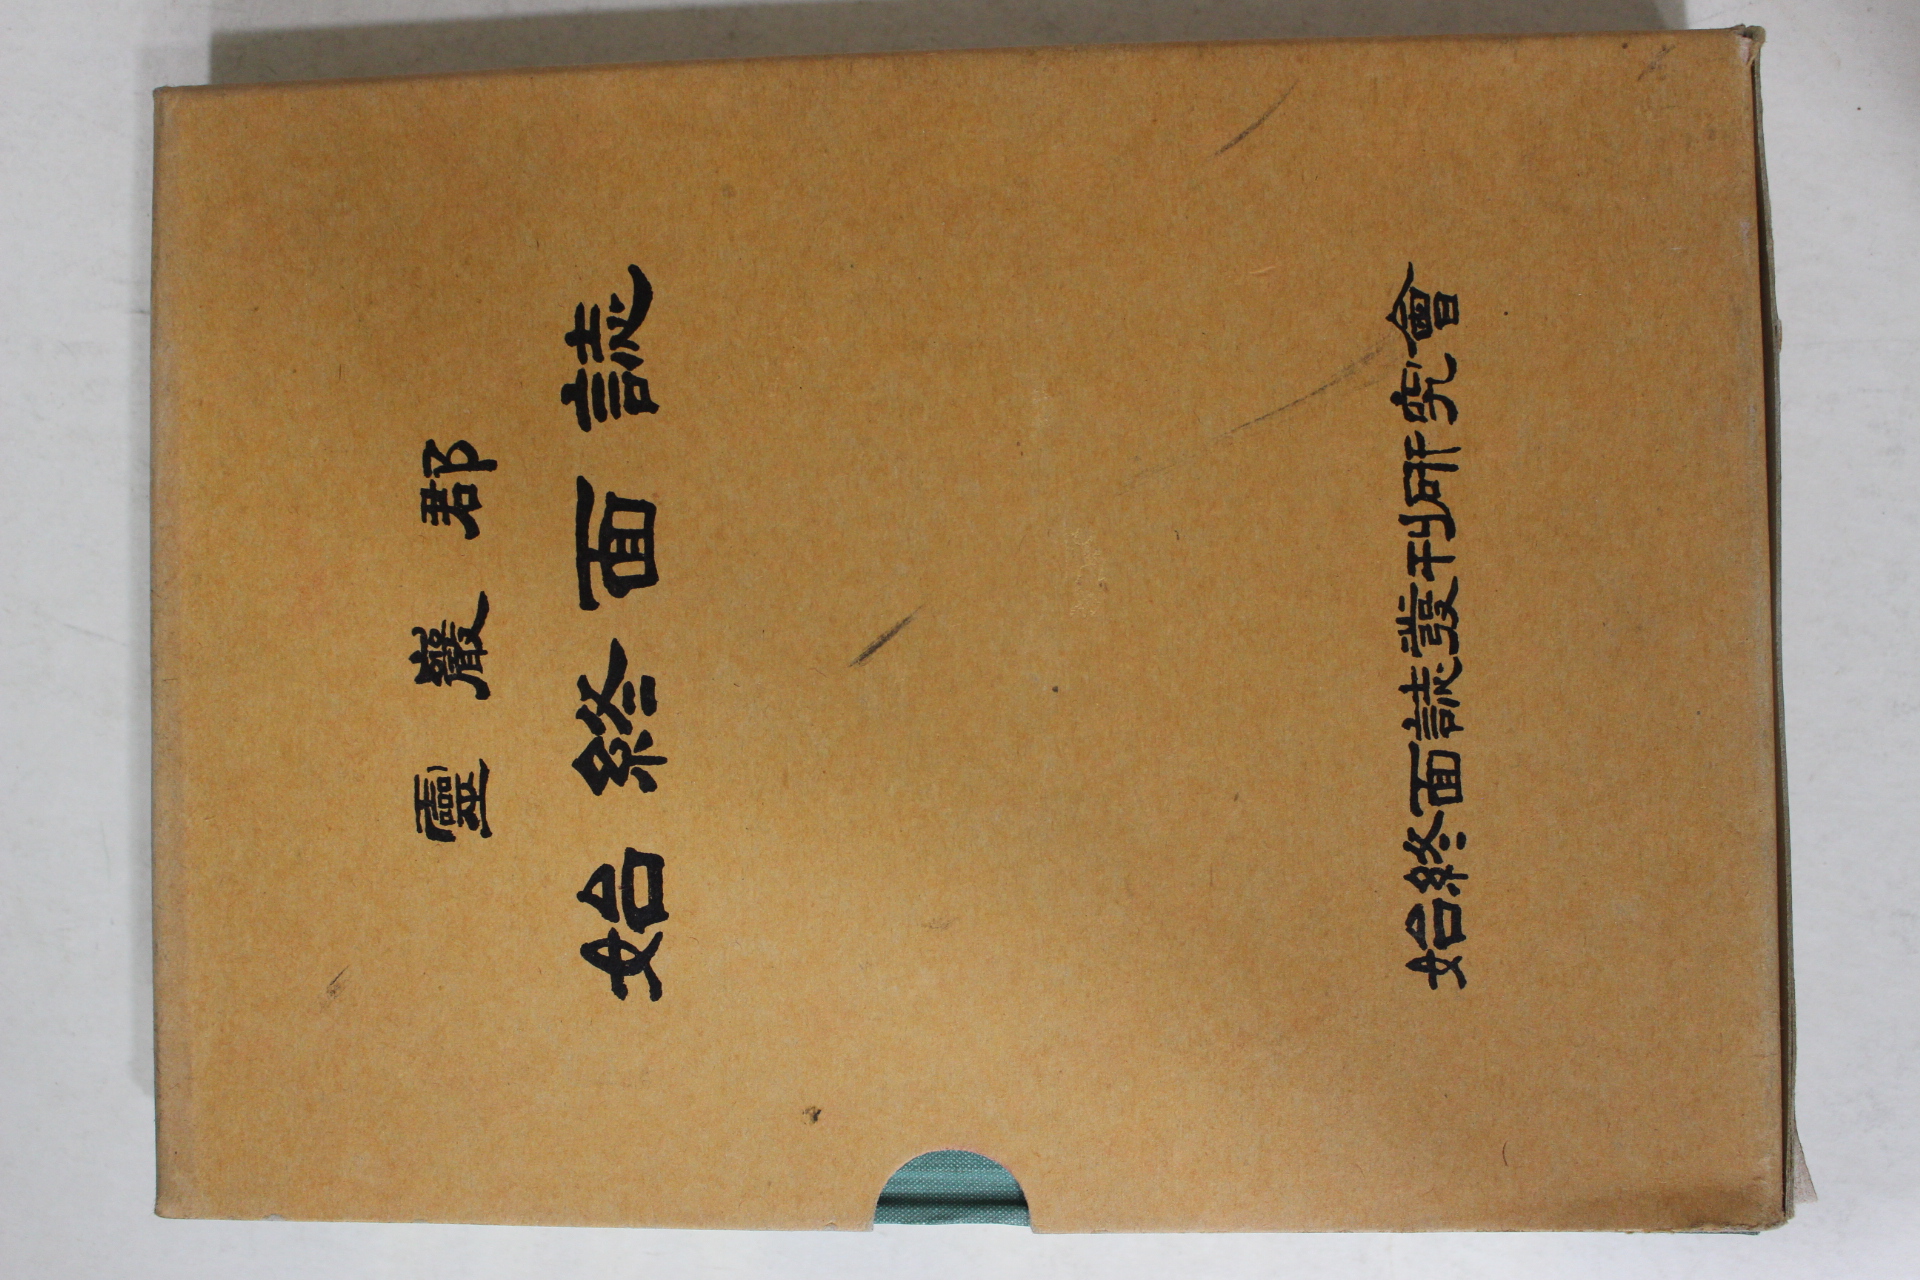 靈巖郡
始終面誌
始終面誌發刊硏究會